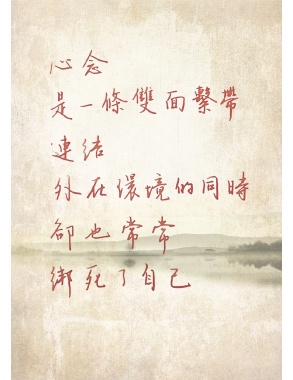 心念
是一條雙面繫帶
連結
外在環境的同時
卻也常常
綁死了自己